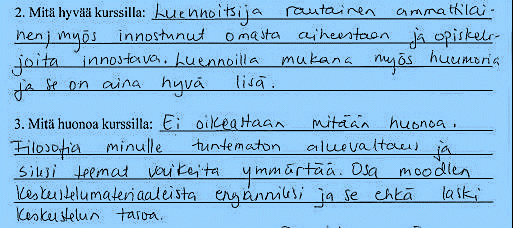 2. Mitä hyvää kurssilla: Luennoitsija rautainen ammattilai-
nen, myös innostunut omasta aiheestaan ja opiskeli-
joita innostava. Luennoilla mukana myös huumoria
ja se on aina hyvä lisä.
3. Mitä huonoa kurssilla: Ei oikeastaan mitään huonoa.
Filosofia minulle tuntematon aluevaltaus ja
siksi teemat vaikeita ymmärtää. Osa moodlen
keskustelumateriaaleista englanniksi ja se ehkä laski
keskustelun tasoa.